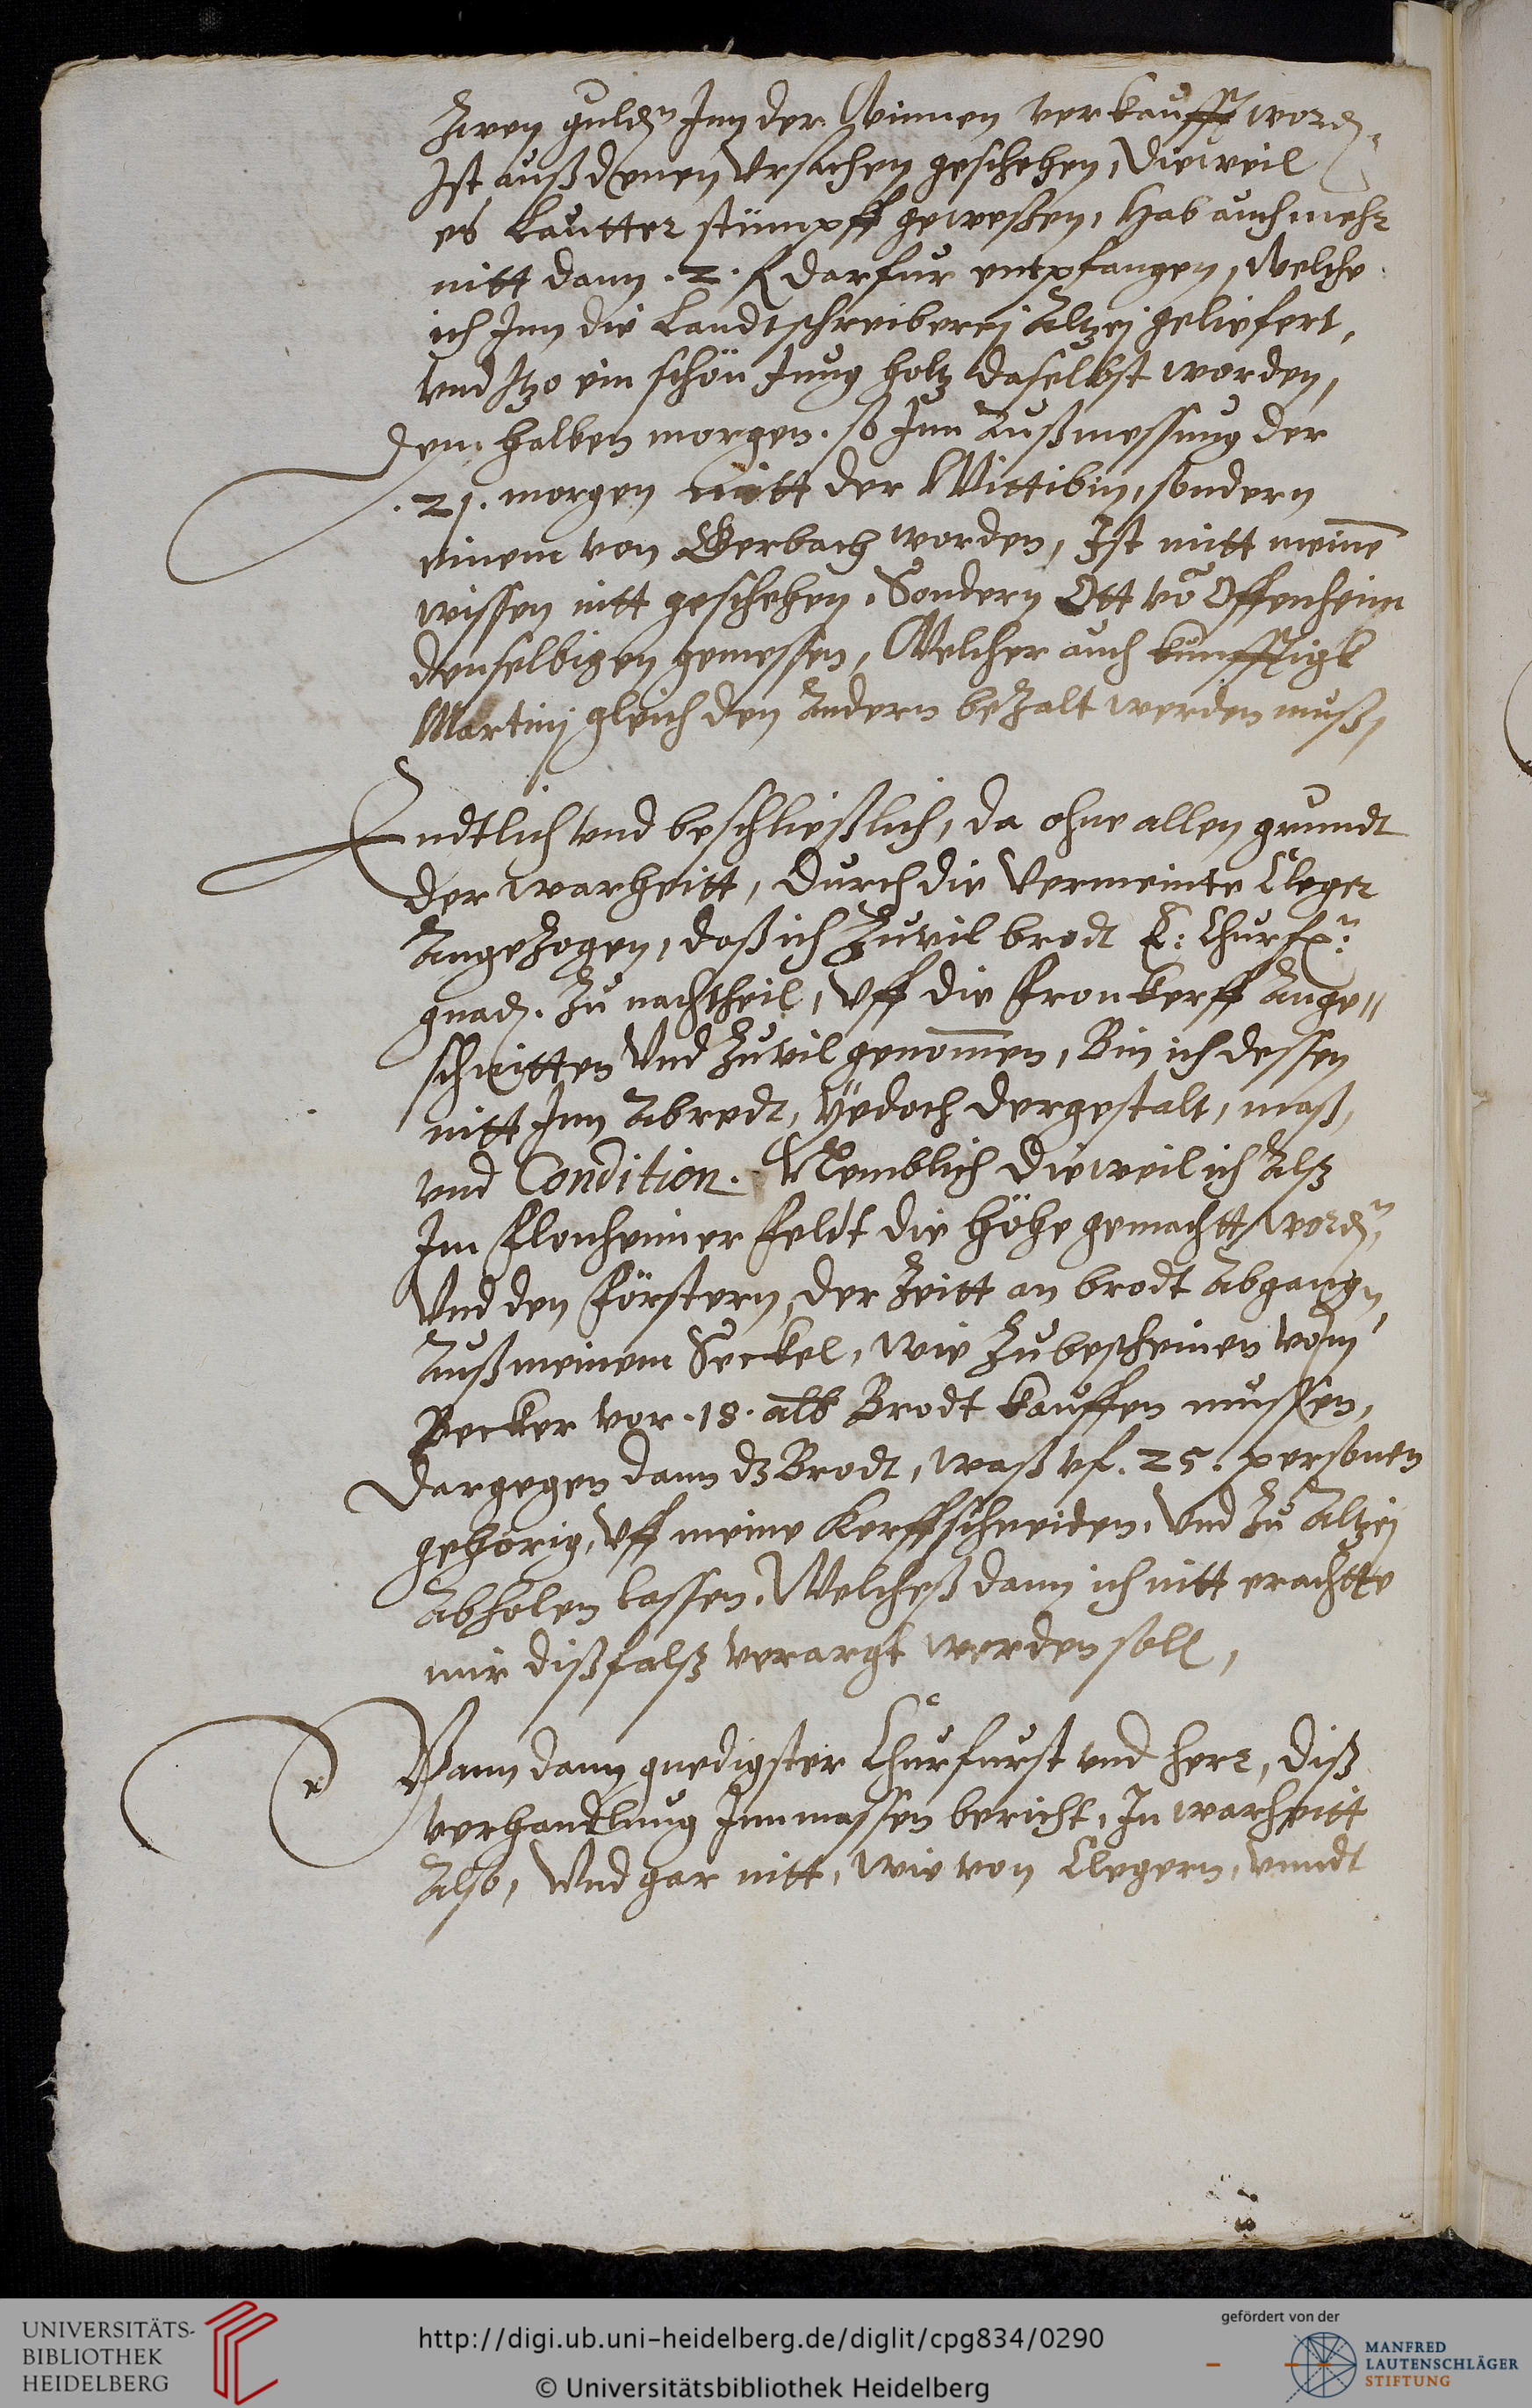 Zwen guld. Inn der Winnen verkaufft word.
Ist auß denen Vrsachen geschehen, dieweil
es lautter stümpff geweßen, hab auch mehr
nitt dann .2. fl darfur entpfangen, welche
ich Inn die Landtschreiberej Altzej geliefert,
vnd Itzo ein schön Jung holtz daselbst worden,
Dem halben morgen, so Inn Außmessung der
.21. morgen nitt der Wittibin, sondern
einem von Gerbach worden, Ist mitt meinē
wissen nitt geschehen, Sondern Ott vō Offenheim
denselbigen gemessen, Welcher auch kunfftigk
Martinj gleich den Andern beZalt werden muß,
Endtlich vnd beschließlich, da ohne allen grundt
der warheitt, durch die Vermeinte Cleger
AngeZogen, daß ich Zuvil brodt E: Churfn:
gnad. Zu nachtheil, Vff die fronkerff Ange„
schnitten Vnd Zuvil genom̄en, Bin ich dessen
nitt Inn Abredt, Yedoch dergestalt, maß,
vnd Condition. Nemblich dieweil ich Alß
Im flonheimer feldt die höhe gemachtt word.
Vnd den förstern, der Zeitt an brodt Abgangn,
Auß meinem Seckel, wie Zubescheinen vom
Becker vor .18. alb Brodt kauffen mussen,
Dargegen dann dz Brodt, waß vf. 25. personen
gehorig, Vff meine kerffschneiden, Vnd Zu Altzej
Abholen lassen, Welcheß dann ich nitt erachtte
mir dißfalß verargt werden soll,
Wann dann gnedigster Churfurst vnd herr, diß
verhandlung Innmassen bericht, In warheitt
Also, Vnd gar nitt, wie von Clegern, vnndt
UNIVERSITÄTS-
BIBLIOTHEK
HEIDELBERG
http://digi.ub.uni-heidelberg.de/diglit/cpg834/0290
© Universitätsbibliothek Heidelberg
gefördert von der
MANFRED
LAUTENSCHLÄGER
STIFTUNG